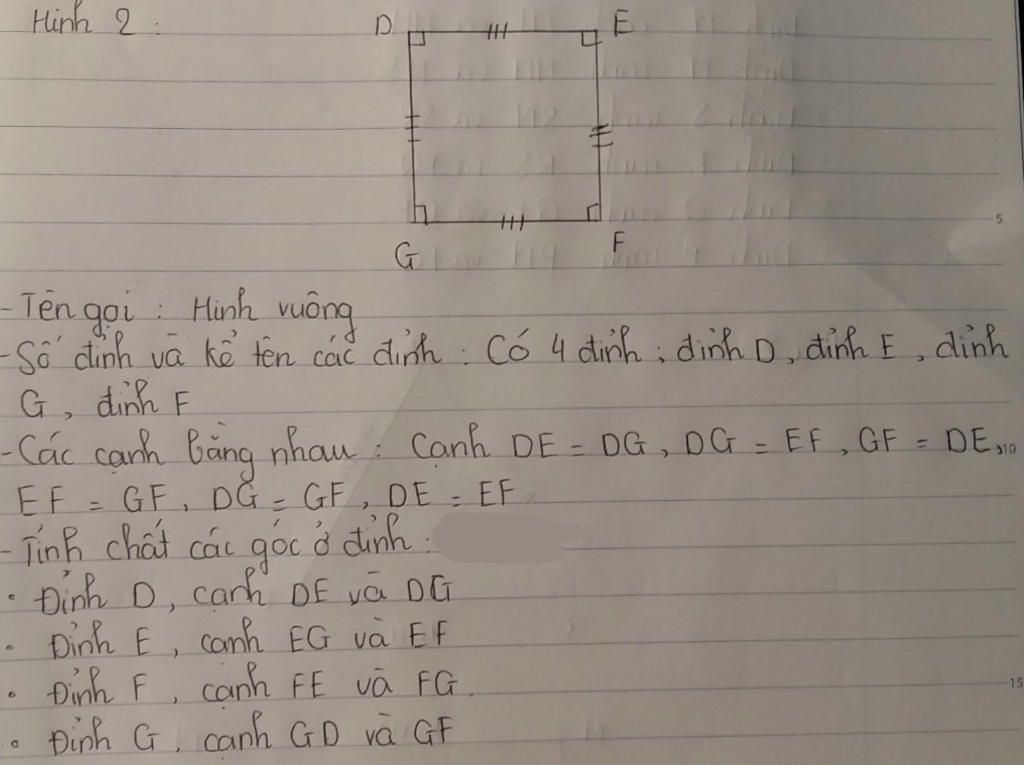 Hình 2 :
D E
G F
5
- Tên gọi : Hình vuông
- Số đỉnh và kể tên các đỉnh : Có 4 đỉnh ; đỉnh D , đỉnh E , đỉnh
G , đỉnh F
- Các cạnh bằng nhau : Cạnh DE = DG , DG = EF , GF = DE ,
10
EF = GF , DG = GF , DE = EF
- Tính chất các góc ở đỉnh :
• Đỉnh D , cạnh DE và DG
• Đỉnh E , cạnh EG và EF
• Đỉnh F , cạnh FE và FG .
15
• Đỉnh G , cạnh GD và GF